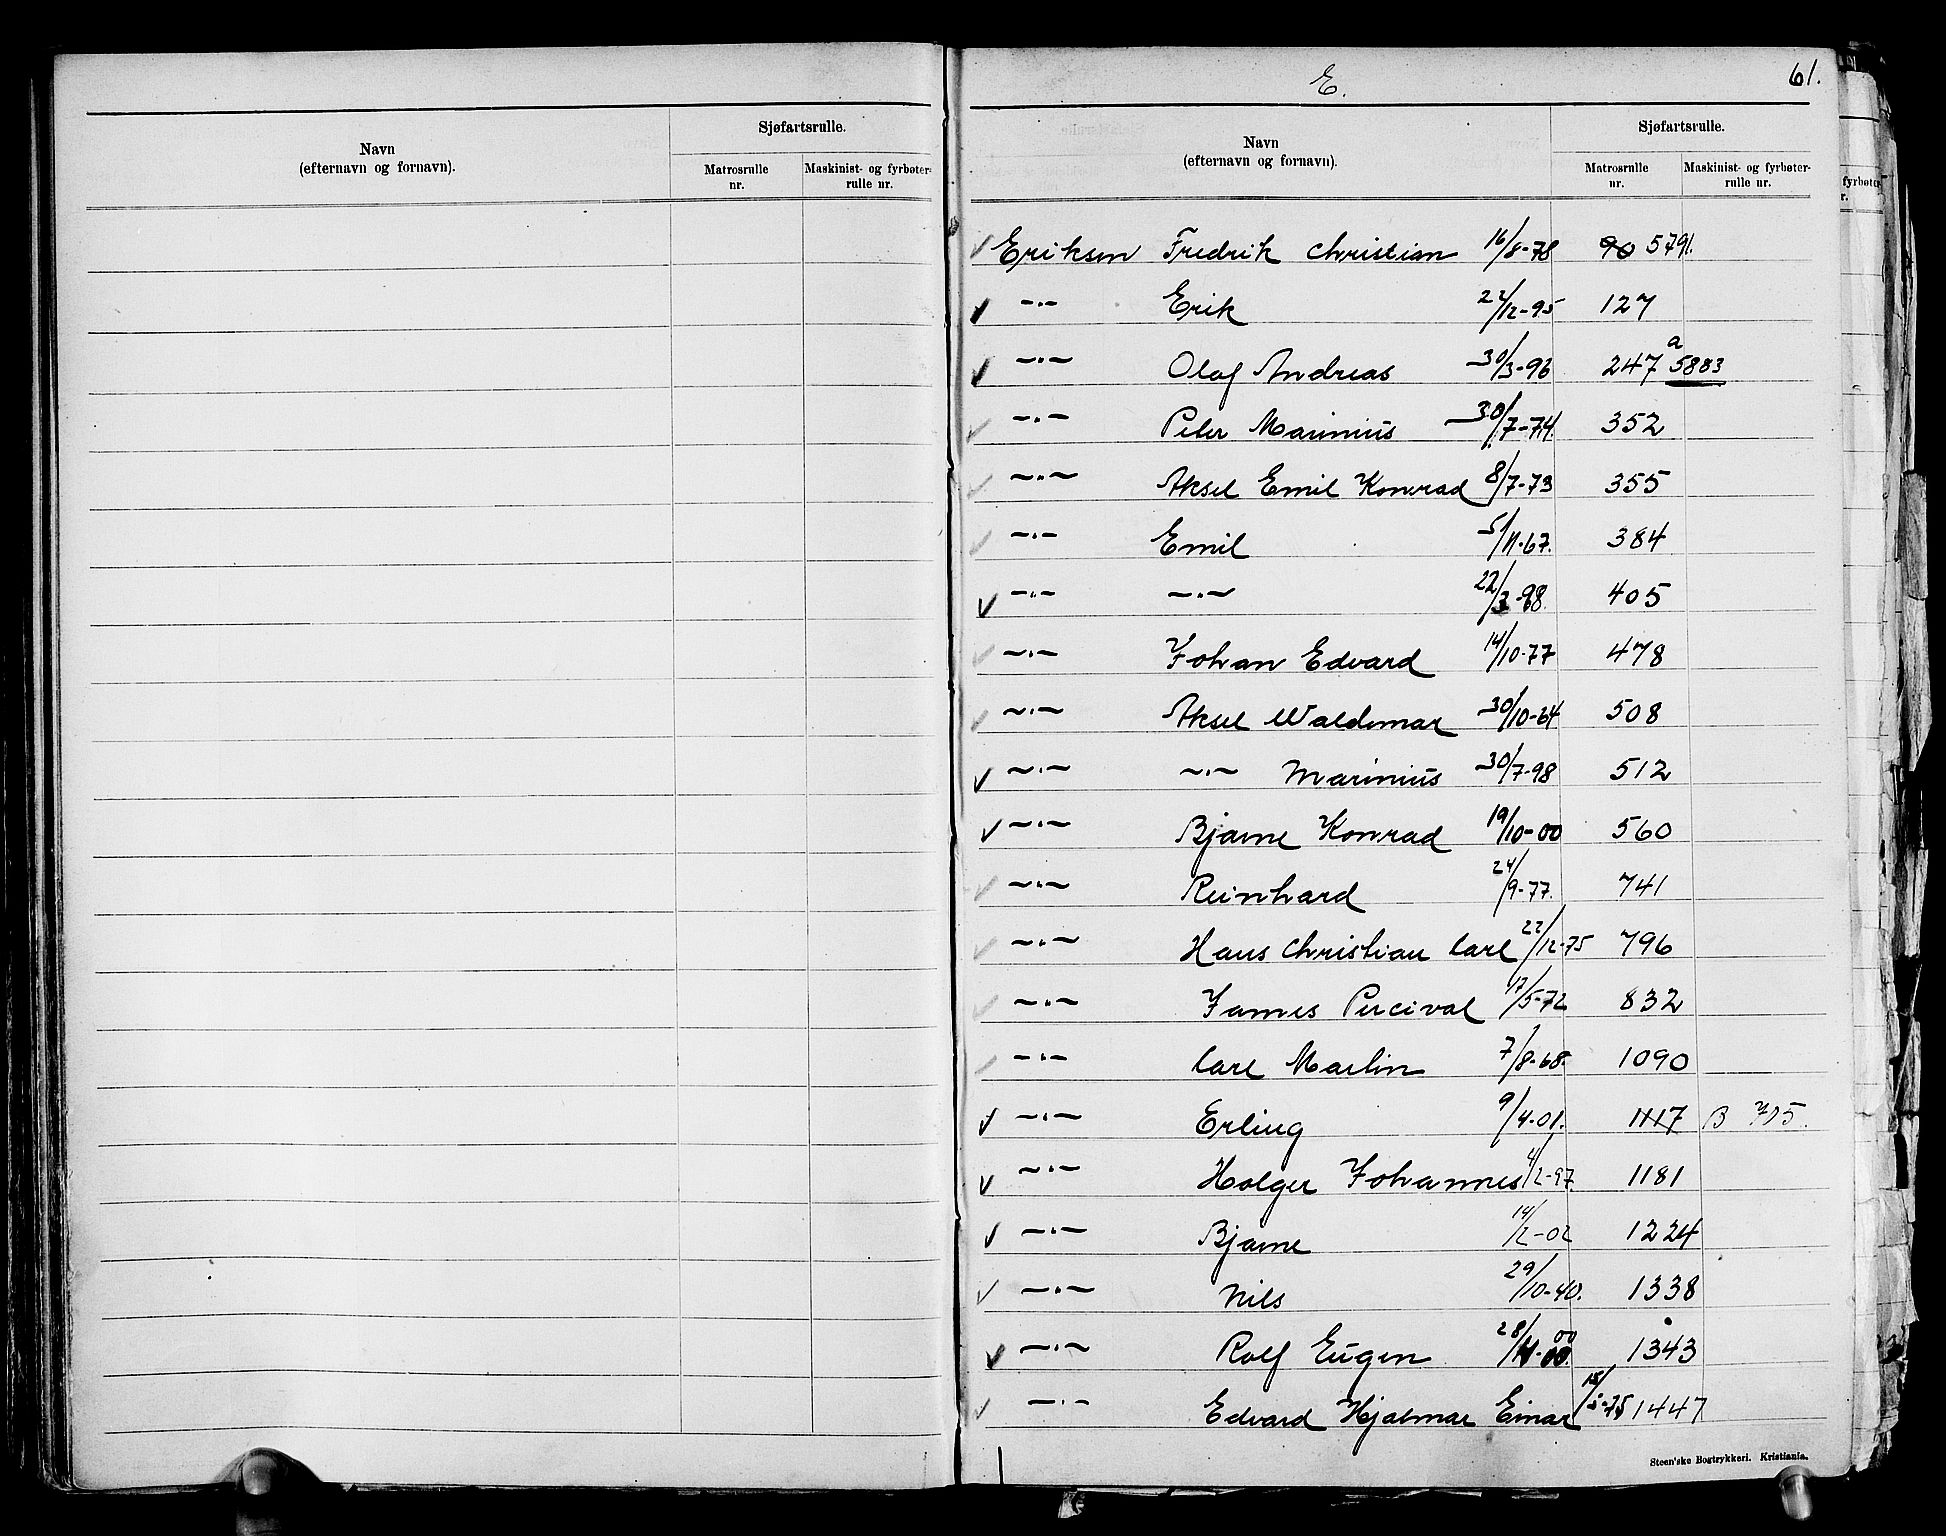 Navn
(efternavn og fornavn).
Sjøfartsrulle.
Matrosrulle nr.
Maskinist- og fyrbøterrulle nr.
E.
61.
Navn
(efternavn og fornavn).
Sjøfartsrulle.
Matrosrulle nr.
Maskinist- og fyrbøter-rulle nr.
fyrbøter
r.
✓ Eriksen Fredrik Christian 16/8-78 90 5791.
✓ —"— Erik 22/12-95 127
✓ —"— Olaf Andreas 30/3-96 247 a 5883
✓ —"— Peter Marinius 30/7-74. 352
✓ —"— Aksel Emil Konrad 8/7-73 355
✓ —"— Emil 5/11-67. 384
✓ —"— —"— 22/3-98. 405
✓ —"— Johan Edvard 14/10-77 478
✓ —"— Aksel Waldemar 30/10-64 508
✓ —"— —"— Marinius 30/7-98 512
✓ —"— Bjarne Konrad 19/10-00 560
✓ —"— Reinhard 24/9-77. 741
✓ —"— Hans Christian Carl 22/12-75 796
✓ —"— James Percival 17/5-72 832
✓ —"— Carl Martin 7/8-68. 1090
✓ —"— Erling 9/4-01. 1117 B 715.
✓ —"— Holger Johannes 4/2-97. 1181
✓ —"— Bjarne 14/2-02 1224
✓ —"— Nils 29/10-40. 1338
✓ —"— Rolf Eugen 28/11-00. 00 1343
✓ —"— Edvard Hjalmar Einar 15/5-75 1447
Steen'ske Bogtrykkeri. Kristiania.